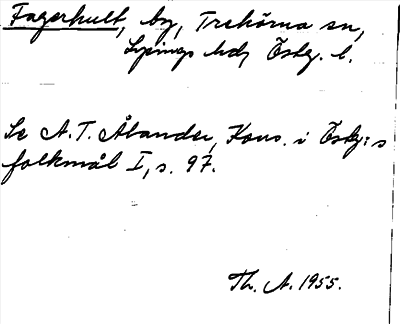 Fagerhult, by, Trehörna sn,
Lysings hd, Östg. l.
Se A. T. Ålander, Kons. i Östg:s
folkmål I, s. 97.
Th. A. 1955.